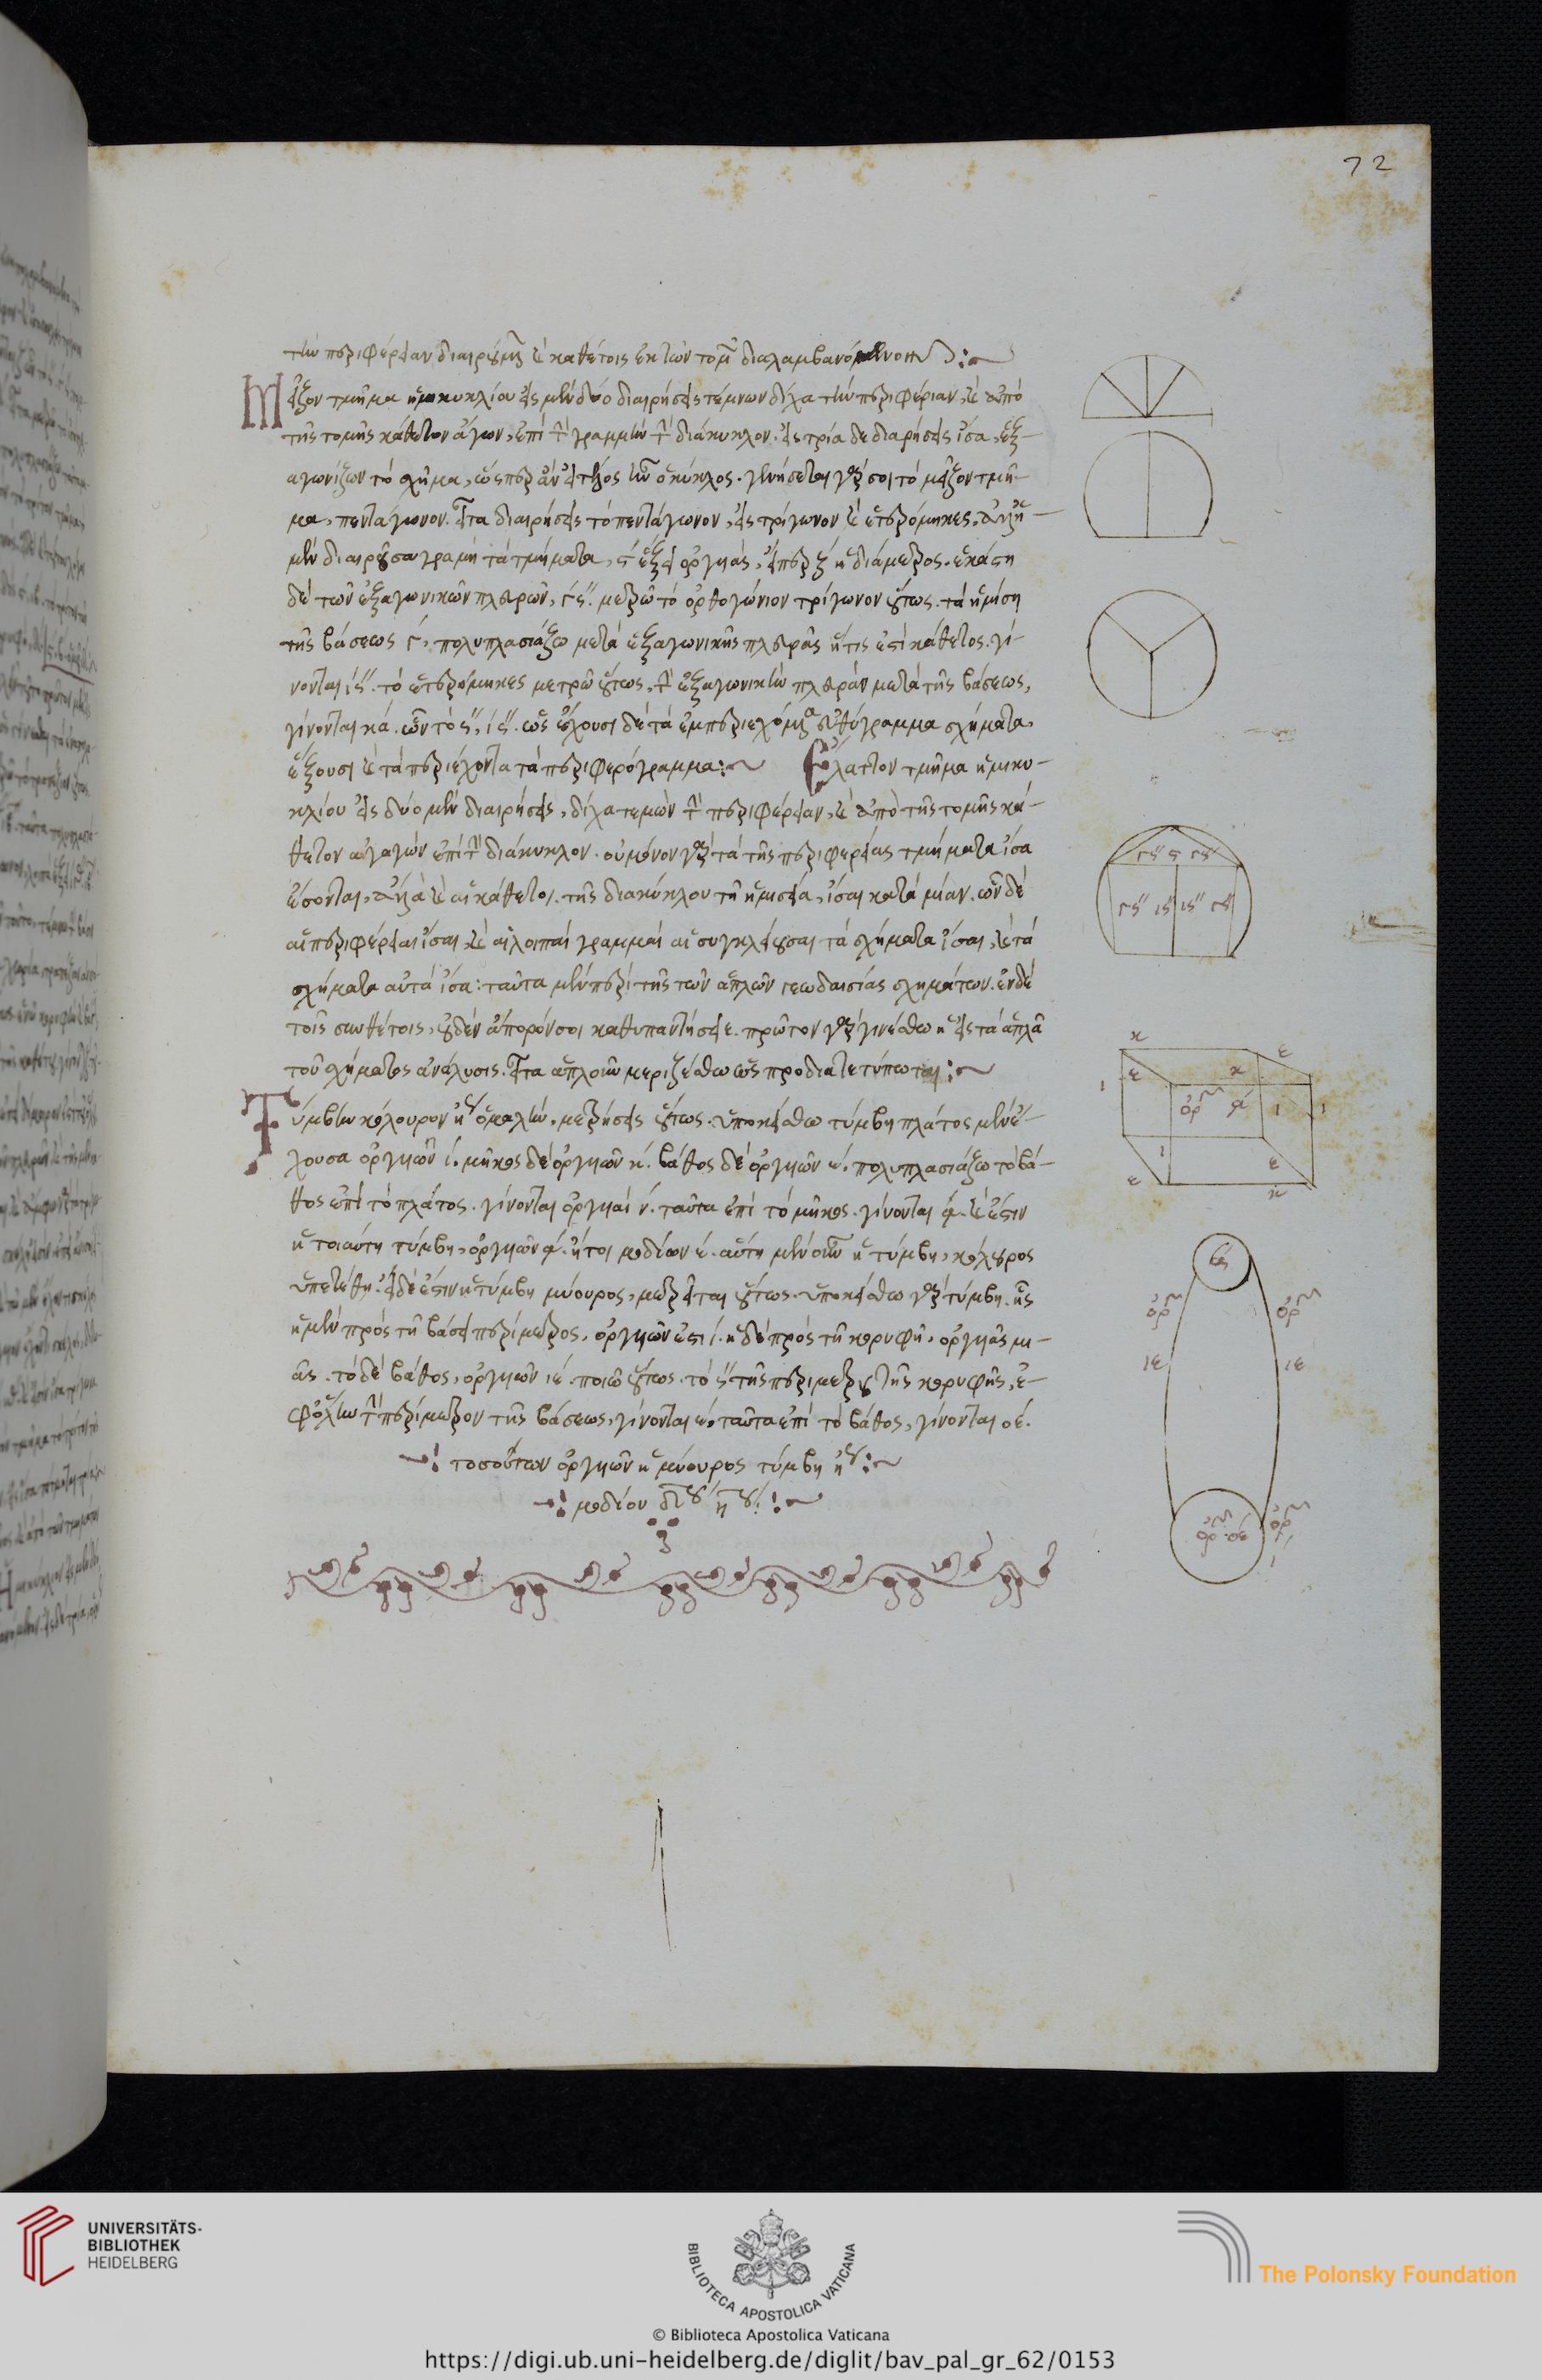 72
τὴν περιφέρειαν διαιρουμένη καὶ καθέτοις ἐκ τῶν τομῶν διαλαμβανόμενον :~
Μεῖζον τμῆμα ἡμικυκλίου εἰς μὲν δύο διαιρήσεις τέμνων δίχα τὴν περιφέριαν, καὶ ἀπὸ
τῆς τομῆς κάθετον ἄγων, ἐπὶ τὴν γραμμὴν τὴν διάκυκλον. εἰς τρία δὲ διαρήσεις ἴσα, ἑξ-
αγωνίζων τὸ σχῆμα, ὥσπερ ἂν εἰ τέλειος ἦν ὁ κύκλος. γενήσεται γάρ σοι τὸ μεῖζον τμῆ-
μα, πεντάγωνον. εἶτα διαιρήσεις τὸ πεντάγωνον, εἰς τρίγωνον καὶ ἑτερόμηκες,
μὲν διαιροῦσα γραμὴ τὰ τμήματα, ἕξει ὀργυιάς, ἡ διάμετρος. ἑκάστη
δὲ τῶν ἑξαγωνικῶν πλευρῶν, γϛ΄΄. μετρῶ τὸ ὀρθογώνιον τρίγωνον οὕτως. τὰ ἡμίση
τῆς βάσεως γ, πολυπλασιάζω μετὰ ἑξαγωνικῆς πλευρᾶς ἥτις ἐστὶ κάθετος. γί-
νονται ιϛ΄΄. τὸ ἑτερόμηκες μετρῶ οὕτως. τὴν ἑξαγωνικὴν πλευρὰν μετὰ τῆς βάσεως,
γίνονται κα. ὧν τὸ ϛ΄΄, ιϛ΄΄. ὡς ἔχουσι δὲ τὰ ἐμπεριεχόμενα εὐθύγραμμα σχήματα,
ἕξουσι καὶ τὰ περιέχοντα τὰ περιφερόγραμμα :~ Ἔλαττον τμῆμα ἡμικυ-
κλίου εἰς δύο μὲν διαιρήσεις, δίχα τεμὼν τὴν περιφέρειαν, καὶ ἀπὸ τῆς τομῆς κά-
θετον ἀγαγὼν ἐπὶ τὴν διάκυκλον. οὐ μόνον γὰρ τὰ τῆς περιφερείας τμήματα ἴσα
ἔσονται, ἀλλὰ καὶ αἱ κάθετοι. τῆς διακύκλου τῇ ἡμισεία, ἴσαι κατὰ μίαν. ὧν δὲ
αἱ περιφέρειαι ἴσαι, καὶ αἱ λοιπαὶ γραμμαὶ αἱ συγκλείουσαι τὰ σχήματα ἴσαι, καὶ τὰ
σχήματα αὐτὰ ἴσα : ταῦτα μὲν περὶ τῆς τῶν ἁπλῶν γεωδαισίας σχημάτων. ἐν δὲ
τοῖς συνθέτοις, οὐδὲν ἄπορόν σοι καθυπαντήσειε. πρῶτον γὰρ γινέσθω ἡ εἰς τὰ ἁπλᾶ
τοῦ σχήματος ἀνάλυσις. εἶτα ἁπλοῦν μεριζέσθω ὡς προδιατετύπωται :~
Τύμβην κόλουρον ἤγουν ὁμαλὴν, μετρήσεις οὕτως. ὑποκείσθω τύμβη πλάτος μὲν ἔ-
χουσα ὀργυιῶν ι. μῆκος δὲ ὀργυιῶν κ. βάθος δὲ ὀργυιῶν ε. πολυπλασιάζω τὸ βά-
θος ἐπὶ τὸ πλάτος. γίνονται ὀργυιαὶ ν. ταῦτα ἐπὶ τὸ μῆκος. γίνονται ͵α. καὶ ἔστιν
ἡ τοιαύτη τύμβη, ὀργυιῶν ͵α. ἤτοι μοδίων ε. αὕτη μὲν οὖν ἡ τύμβη, κόλουρος
ὑπετέθη. εἰ δέ ἐστιν ἡ τύμβη μύουρος, μετρεῖται οὕτως. ὑποκείσθω γὰρ τύμβη. ἧς
ἡ μὲν πρὸς τῇ βάσει περίμετρος, ὀργυιῶν ἐστι ι. ἡ δὲ πρὸς τῇ κορυφῇ, ὀργυιᾶς μι-
ᾶς. τὸ δὲ βάθος, ὀργυιῶν ιε. ποιῶ οὕτως. τὸ ϛ΄΄ τῆς περιμέτρου τῆς κορυφῆς, ἐ-
φ᾽ ὅλην τὴν περίμετρον τῆς βάσεως, γίνονται ε, ταῦτα ἐπὶ τὸ βάθος, γίνονται οε.
τοσούτων ὀργυιῶν ἡ μύουρος τύμβη :~
μοδίου :~
γϛ΄΄ ϛ γϛ΄΄
γϛ΄΄ ιϛ΄΄ ιϛ΄΄ γϛ΄΄
κ ε
ι ε κ
ὀργ ͵α ι ι
ι ε
ε κ
ὀργ ὀργ
ιε ιε
ὀργ οε ὀργ ι
UNIVERSITÄTS-
BIBLIOTHEK
HEIDELBERG
BIBLIOTECA APOSTOLICA VATICANA
The Polonsky Foundation
© Biblioteca Apostolica Vaticana
https://digi.ub.uni-heidelberg.de/diglit/bav_pal_gr_62/0153